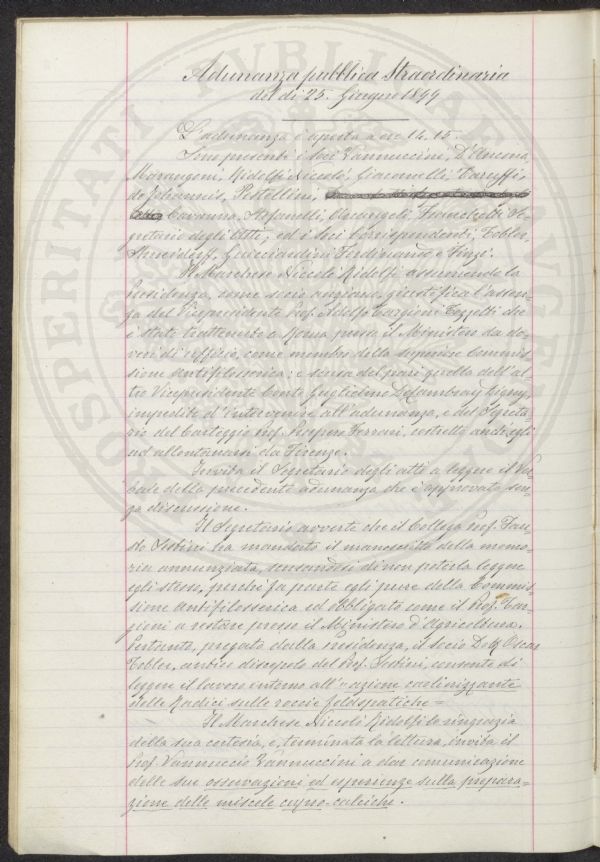 Adunanza pubblica Straordinaria
del dì 25. Giugno 1899
L'adunanza è aperta a ore 14.15.
Son presenti i soci Vannuccini, D'Ancona,
Marangoni, Ridolfi Niccolò, Giacomelli, Caruffi,
de Johannis, Pestellini,
Caranna, Stefanelli, Arcangeli, Franchetti Se-
gretario degli Atti; ed i soci Corrispondenti, Tobler,
Guicciardini Ferdinando e Finzi.
Il Marchese Niccolò Ridolfi assumendo la
Presidenza, come socio anziano, giustifica l'assen-
za del Vicepresidente Prof. Adolfo Targioni Tozzetti che
è stato trattenuto a Roma presso il Ministero da do-
veri di ufficio, come membro della superiore Commis-
sione antifilosserica: e scusa del pari quella dell'al-
tro Vicepresidente Conte Guglielmo De Cambray Digny,
impedito d'intervenire all'adunanza, e del Segreta-
rio del Carteggio Prof. Prospero Ferrari, costretto anch'egli
ad allontanarsi da Firenze.
Invita il Segretario degli atti a leggere il Ver-
bale della precedente adunanza che è approvato sen-
za discussione.
Il Segretario avverte che il Collega Prof. Fau-
sto Sestini ha mandato il manoscritto della memo-
ria annunziata, scusandosi di non poterla leggere
egli stesso, perchè fa parte egli pure della Commis-
sione antifilosserica ed obbligato come il Prof. Tar-
gioni a restare presso il Ministero d'Agricoltura.
Pertanto, pregato dalla presidenza, il socio Dott. Oscar
Tobler, antico discepolo del Prof. Sestini, consente di
leggere il lavoro intorno all'"azione caolinizzante
delle Radici sulle roccie feldspatiche =
Il Marchese Niccolò Ridolfi lo ringrazia
della sua cortesia, e, terminata la lettura, invita il
Prof. Vannuccio Vannuccini a dar comunicazione
delle sue osservazioni ed esperienze sulla prepara-
zione delle miscele cupro-calciche.
PROSPERITATI PVBLICAE AVGENDAE